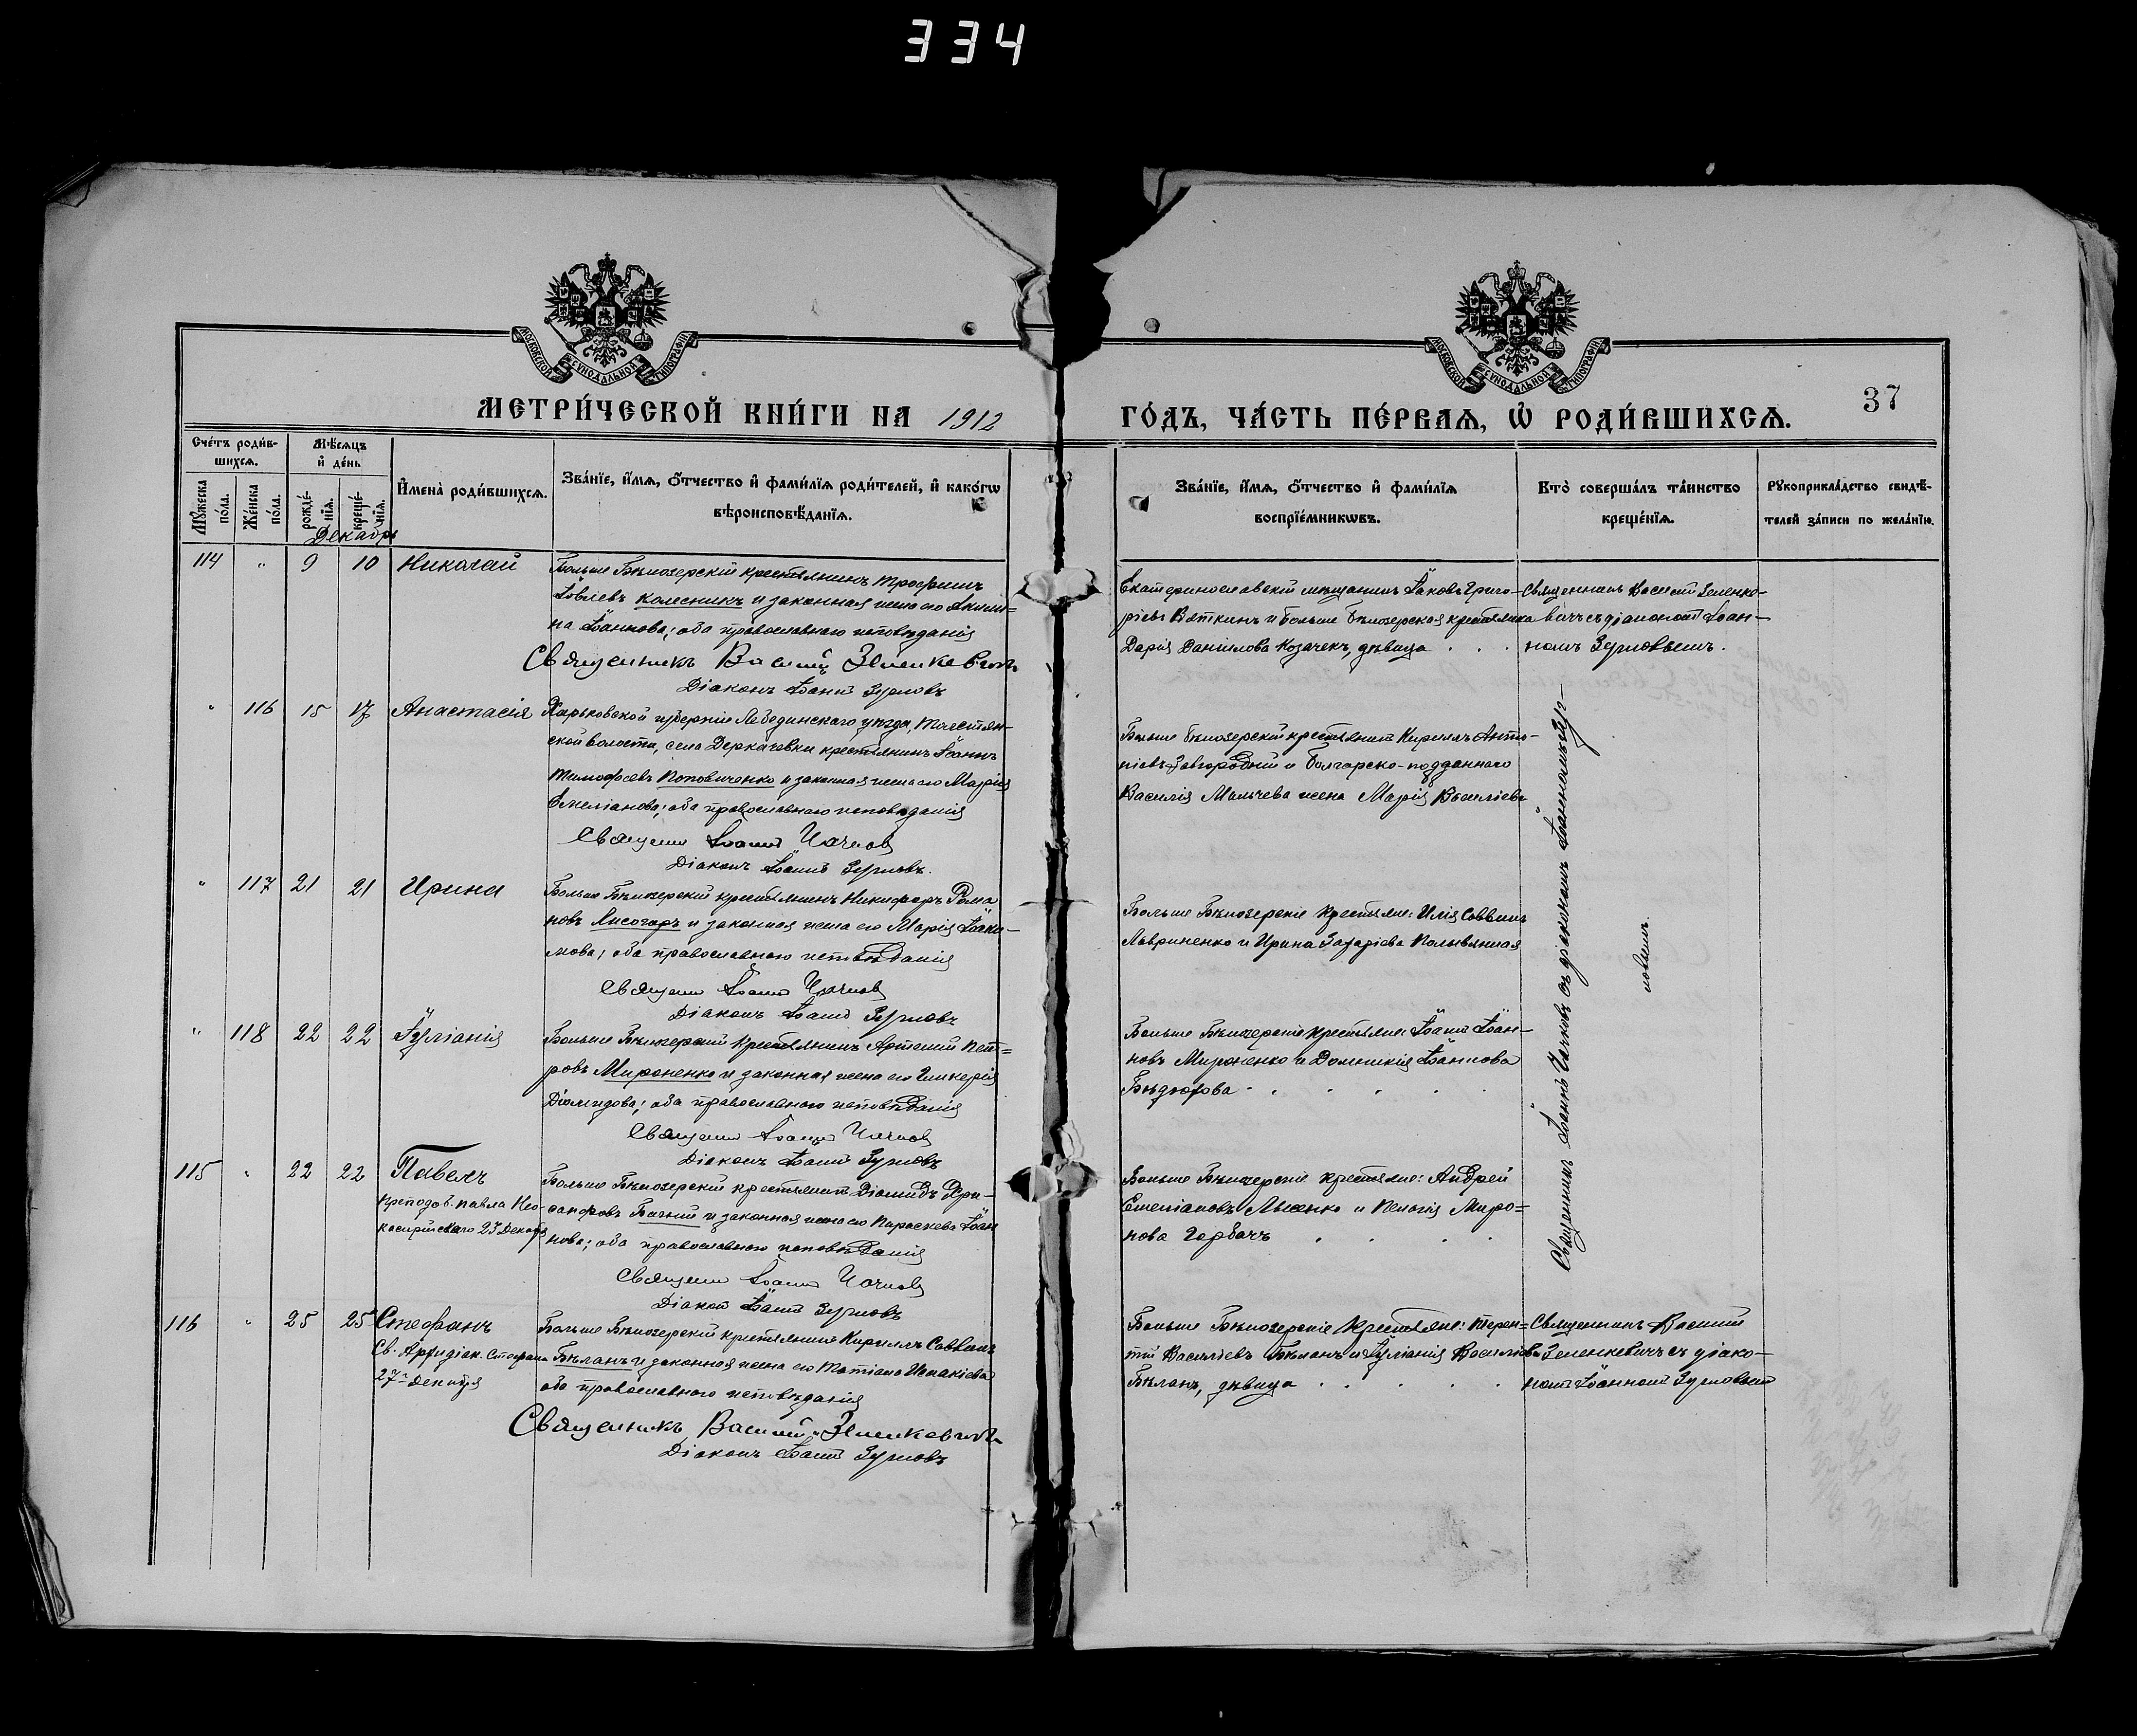 334
МОСКОВСКОЙ СѴНОДАЛЬНОЙ ТИПОГРАФІИ
МОСКОВСКОЙ СѴНОДАЛЬНОЙ ТИПОГРАФІИ
37
МЕТРИ́ЧЕСКОЙ КНИ́ГИ НА 1912
ГО́ДЪ, ЧА́СТЬ ПЕ́РВАѦ, Ѡ҆ РОДИ́ВШИХСѦ.
Сче́тъ роди́в-
шихсѧ.
Мѣ́сѧцъ
и҆ де́нь
Мꙋ́жеска
по́ла.
Же́нска
по́ла.
рожде́-
нїѧ.
креще́-
нїѧ.
И҆мена̀ роди́вшихсѧ.
Зва́нїе, и҆́мѧ, ѻ҆́тчество и҆ фами́лїѧ роди́телей, и҆ како́гѡ
вѣроисповѣ́данїѧ.
Зва́нїе, и҆́мѧ, ѻ҆́тчество и҆ фами́лїѧ
воспрїе́мникѡвъ.
Кто̀ соверша́лъ та́инство
креще́нїѧ.
Рꙋкоприкла́дство свидѣ́-
телей за́писи по жела́нїю.
Декабрь
114 " 9 10 Николай
Больше Бѣлозерскій крестьянинъ Трофимъ
Іовлевъ Колесникъ и законная жена его Акили-
на Іоаннова; оба православнаго исповѣданія
Священникъ Василій Зеленкевичъ
Діаконъ Іоаннъ Зерновъ
Екатеринославскій мѣщанинъ Іаковъ Григо-
рьевъ Вяткинъ и Больше Бѣлозерская крестьянка
Дарія Даніилова Козачек, дѣвица . . .
Священникъ Василій Зеленке-
вичъ съ діакономъ Іоан-
номъ Зерновымъ.
" 116 15 17 Анастасія
Харьковской губерніи Лебединскаго уѣзда, Толстян-
ской волости, села Деркачевки крестьянинъ Іоаннъ
Тимофеевъ Поповиченко и законная жена его Марія
Емеліанова; оба православнаго исповѣданія
Священ Іоаннъ
Діаконъ Іоаннъ Зерновъ.
Больше Бѣлозерскій крестьянинъ Кириллъ Анто-
ніевъ Завгородній и Болгарско-подданнаго
Василія жена Марія Василіева
" 117 21 21 Ирина
Больше Бѣлозерскій крестьянинъ Никифоръ Рома
новъ Лисогоръ и законная жена его Марія Іоаки-
мова; оба православнаго исповѣданія
Священ Іоаннъ
Діаконъ Іоаннъ Зерновъ
Больше Бѣлозерскіе крестьяне: Илія Саввинъ
Лавриненко и Ирина Захаріева Полывяная
" 118 22 22 Іуліанія
Больше Бѣлозерскій крестьянинъ Артемій Пет-
ровъ Мироненко и законная жена его Гликерія
Діомидова; оба православнаго исповѣданія
Священ Іоаннъ
Діаконъ Іоаннъ Зерновъ
Больше Бѣлозерскіе крестьяне: Іоаннъ Іоан-
новъ Мироненко и Домникія Іоаннова
115 " 22 22 Павелъ
Преподоб. Павла Нео-
кесарійскаго 23 Декабря
Больше Бѣлозерскій крестьянинъ Діомидъ Хри-
санфовъ и законная жена его Параскева Іоан
нова; оба православнаго исповѣданія
Священ Іоаннъ
Діаконъ Іоаннъ Зерновъ
Больше Бѣлозерскіе крестьяне: Андрей
Емеліановъ Лысенко и Пелагія Миро-
нова Горбачъ . . . .
Священникъ Іоаннъ съ діакономъ Іоанномъ Зер-
новымъ
116 " 25 25 Стефанъ
Св. Архидіак. Стефана
27го Декабря
Больше Бѣлозерскій крестьянинъ Кириллъ Саввинъ
Бѣланъ и законная жена его Татіана Исаакіева
оба православнаго исповѣданія
Священникъ Василій Зеленкевичъ
Діаконъ Іоаннъ Зерновъ
Больше Бѣлозерскіе крестьяне: Терен-
тій Василіевъ Бѣланъ и Іуліанія Василіева
Бѣланъ, дѣвица . . . .
Священникъ Василій
Зеленкевичъ съ діако-
номъ Іоанномъ Зерновымъ